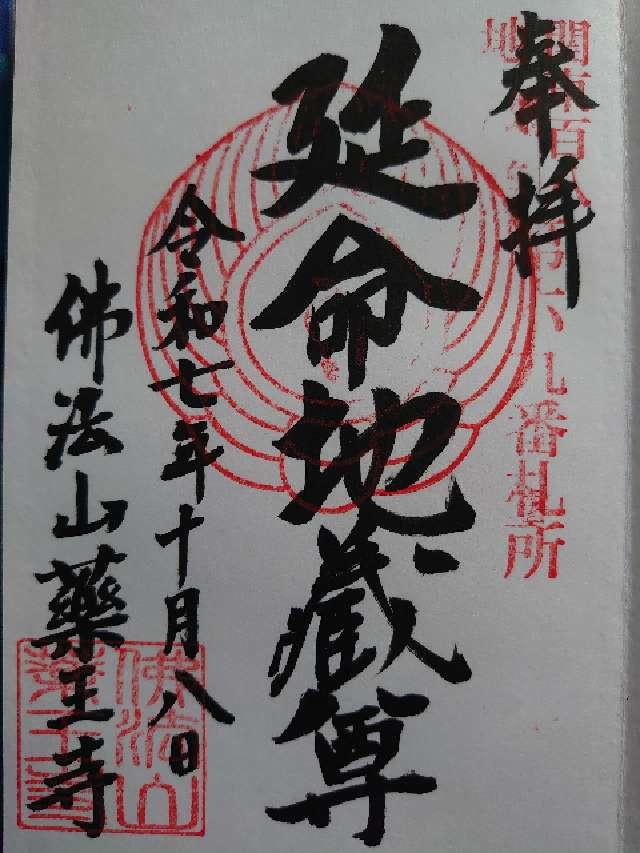 奉拝
関東百八
地
番札所
延命地蔵尊
令和七年十月八日
佛法山薬王寺
佛法山
薬王寺